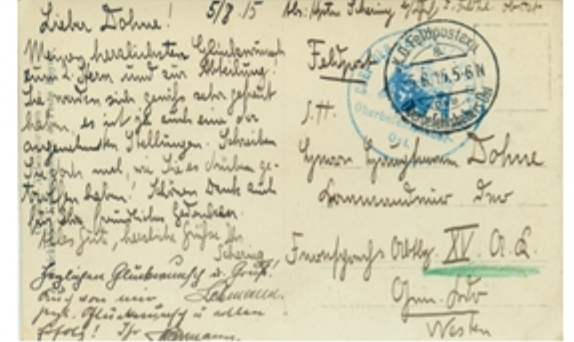 Lieber Dohne! 5/8.15
Meinen herzlichsten Glückwunsch
zum 2. Stern und zur Abteilung.
Sie werden sich gewiß sehr gefreut
haben, es ist ja auch eine der
angenehmsten Stellungen. Schreiben
Sie doch mal, wie Sie es drüben ge-
troffen haben! Schönen Dank auch
für die freundlichen Gedanken.
Alles Gute, herzliche Grüße Ihr
Schering
Herzlichen Glückwunsch u. Gruß!
Lehmann.
Auch von mir
Glückwunsch u. allen
Erfolg! Ihr
Abs: Hptm Schering
Feldpost
K.D. Feldpostexp.
5-6 N
Oberbefehlshabers Ost
S.H.
Herrn Hauptmann Dohne
Kommandeur der
Fernsprech Abtlg. XV. A.K.
Westen